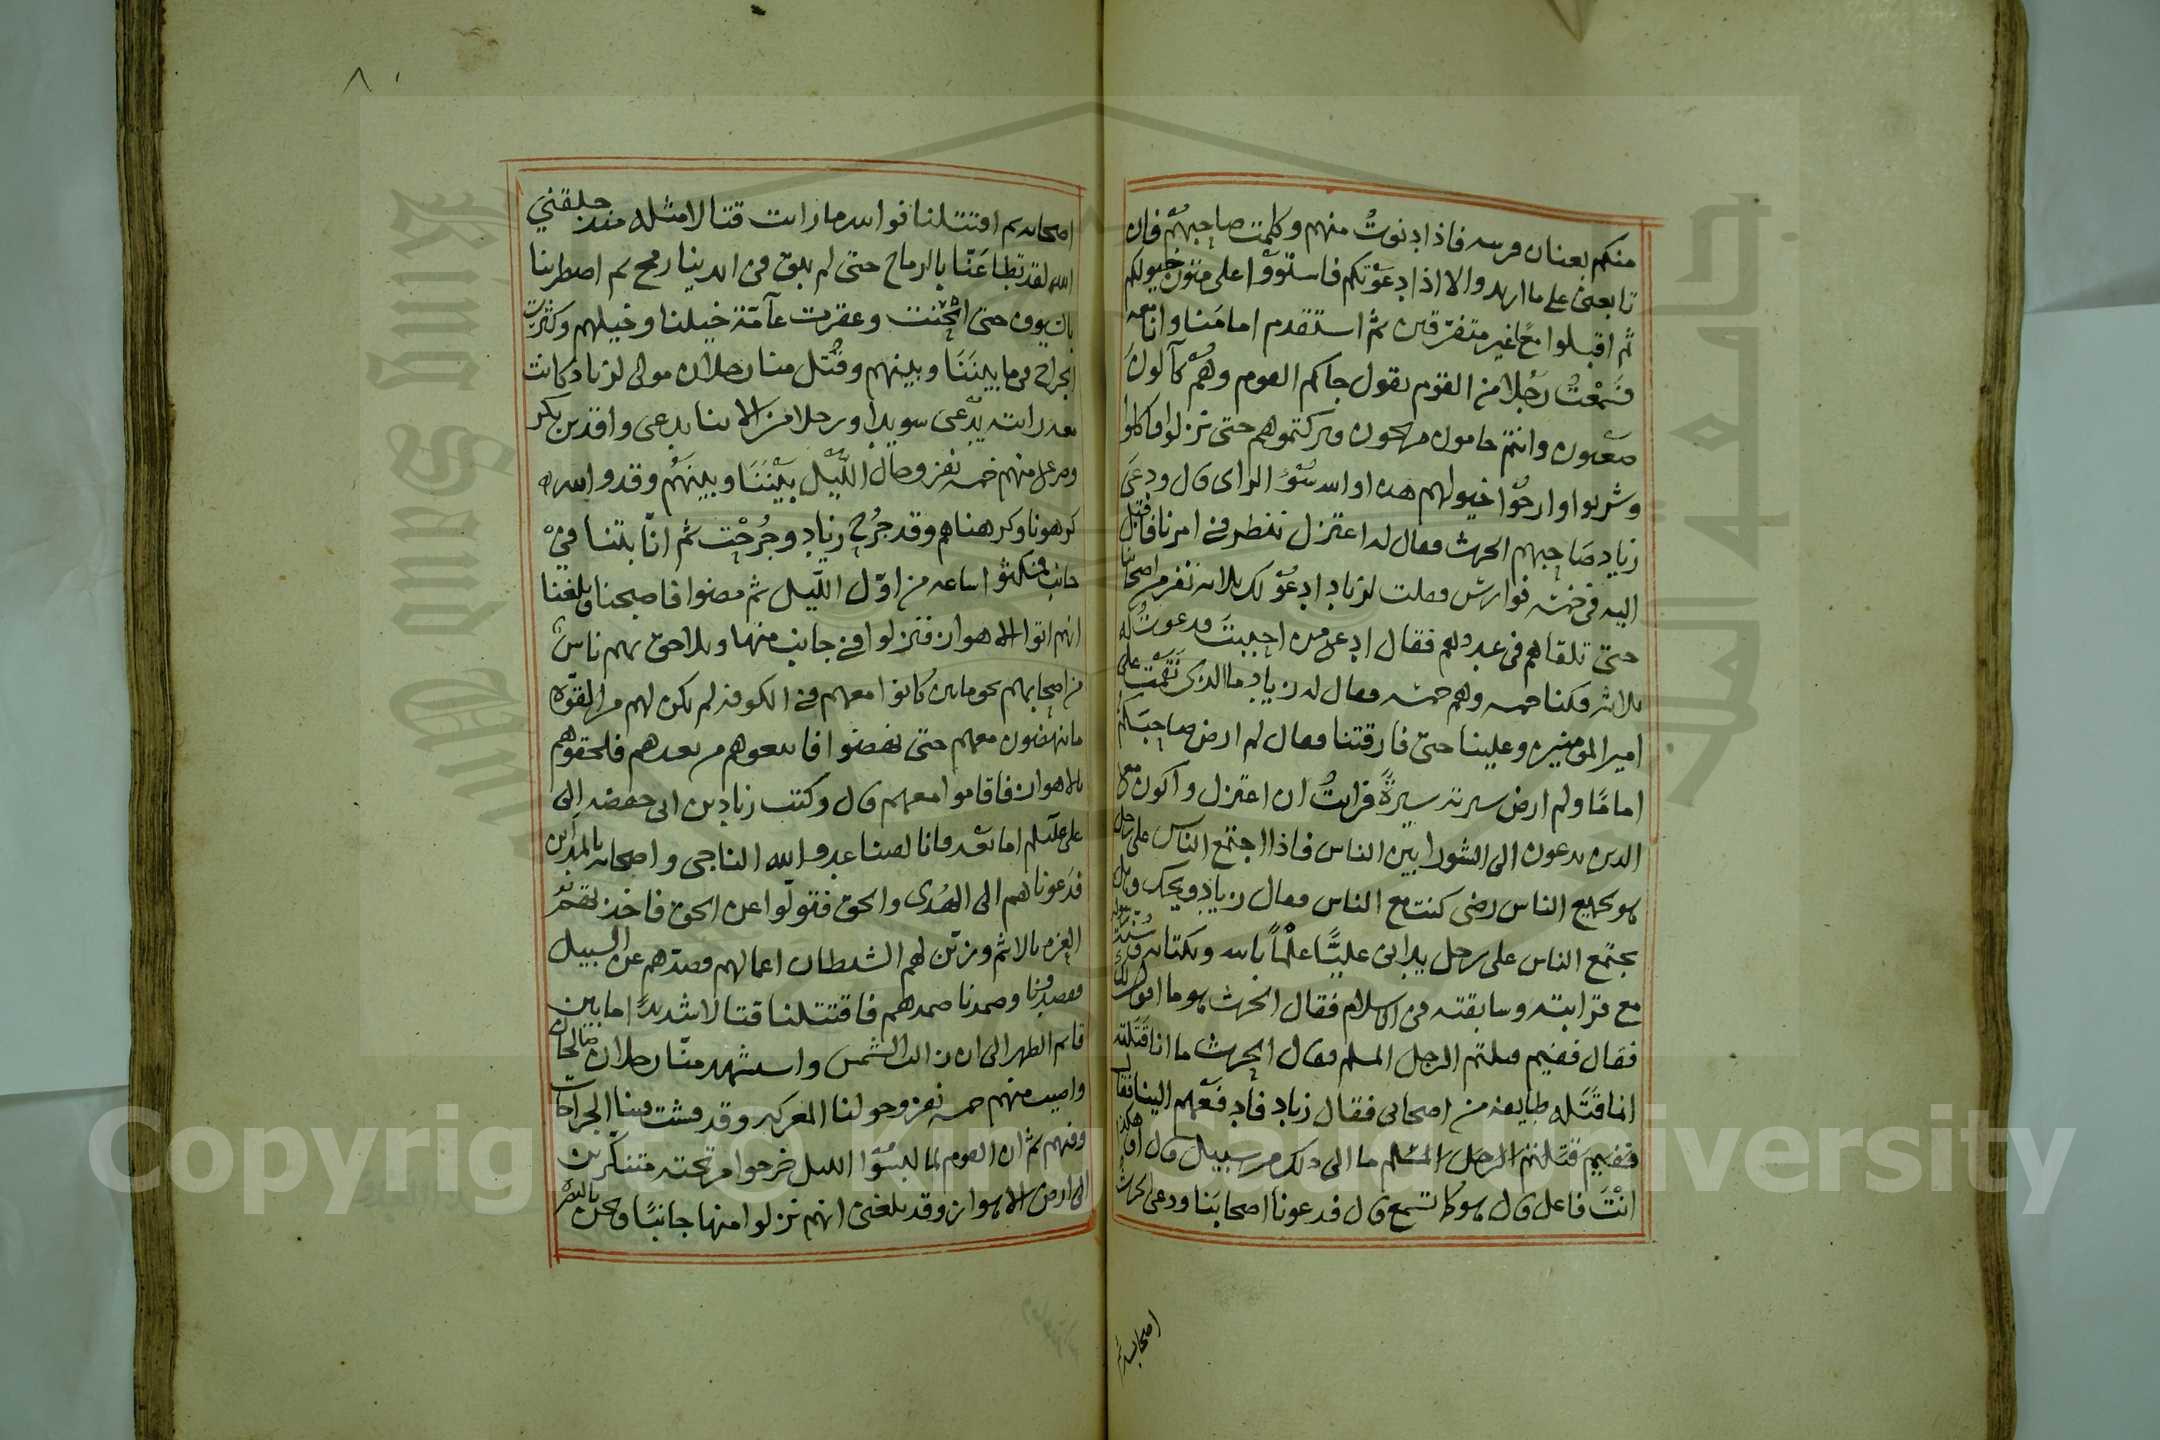 منكم بعنان فرسه فاذا دنوتُ منهم وكلمت صاحبهُم فان
تابعنى على ما اريد والا اذا دعَوْتكم فاستَوْوا على متون خيولكم
ثم اقبلوا معًا غير متفرقين ثمَّ استقدم امامَنا وانا معه
فسَمعْتُ رَجُلا من القوم يقول جاكم القوم وهُم كآلونَ
معَيون وانتم حامون مريحون وتركتموهم حتى نزلوا فاكلوا
وشربوا وارحوا خيولهم هذا والله سُوْءُ الراى قال ودعَى
زياد صَاحبهم الحرث فقال له اعتزل ننظر فى امرنا فاقبل
اليه فى خمسَة فوارس فقلت لزياد ادعُوْ لك ثلاثة نفر من اصحابنا
حتى تلقاهم فى عددهم فقال ادع من احببتَ فدعوتُ له
ثلاثه فكنا خمسه وهم خمسَه فقال له زياد ما الذى نَقَمْت على
امير المومنين وعلينا حتى فارقتنا فقال لم ارض صاحبَكُم
امامًا ولم ارض سيرته سيرةً فرايتُ ان اعتزل واكون مع
الذين يدعون الى الشورا بين الناس فاذا اجتمع الناس على رجل
هو لجميع الناس رضى كنت مع الناس فقال زياد ويحك وهل
يجتمع الناس على رجل يدانى عليًّا علْمًا بالله وبكتابه وسُنّة رسوله
مع قرابته وسابقته فى الاسلام فقال الحرث هو ما اقول لك
فقال ففيم قتلتم الرجل المسلم فقال الحرث ما انا قَتَلته
انما قَتَله طايفه من اصحابى فقال زياد فادفعهم الينا فقال
ففيم قتلتم الرجل المسلم ما الى ذلك من سبيل قال افهكذا
انتَ فاعل قال هو كما تسمع قال فدعونا اصحابَنا ودعى الحرث
اصحابه ثم
اصحابه ثم اقتتلنا فوالله ما رايت قتالا مثله منذ خلقني
الله لقد تطاعَنّا بالرماح حتى لم يبق فى ايدينا رمح ثم اضطربنا
بالسيوف حتى انحنت وعقرت عآمّة خيلنا وخيلهم وكثرت
الجراح فيما بيننَا وبينهم وقُتل منا رجلان مولى لزياد كانت
معه رايته يدّعى سويدا ورجلا من الابنا يدعى وافد بن بكر
وصرعنا منهم خمسه نفر وحال اللَّيل بيْننَا وبينهُم وقد والله
كرهونا وكرهناهم وقد جُرح زياد وجُرحْت ثم انّا بتنا فىْ
جانب فمكثوا ساعه من اوّل اللَّيل ثم مضوا فاصبحنا وبلغنا
انهم اتوا الاهوان فنزلوا فى جانب منها وتلاحق بهم ناسٌ
من اصحابهم نحو مايتين كانوا معهم فى الكوفه لم يكن لهم من القوّة
ما ينهضون معهم حتى نهضوا فاتبعوهم من بعدهم فلحقوهم
بالاهوان فاقاموا معهم قال وكتب زياد بن ابى حفصه الى
على عليلم اما بعد فانا لقينا عدو الله الناجى واصحابه بالمداين
فدَعوناهم الى الهُدى والحق فتولّوا عن الحق فاخذتهم
العزه بالاثم وزيّن لهم الشيطان اعمالهم فصدّهم عن السبيل
فقصدونا وصمدنا صمدهم فاقتتلنا قتالا شديدًا ما بين
قايم الظهر الى ان زالت الشّمس واستشهد منّا رجلان صالحان
واصيب منهم خمسه نفر وخولنا المعركه وقد فشت فينا الجراحات
وفيهم ثم ان القوم لما لبسُوا الليل خرجوا من تحته متنكّرين
الى ارض الاهوان وقد بلغنى انهم نزلوا منها جانبًا ونحن بالبصره